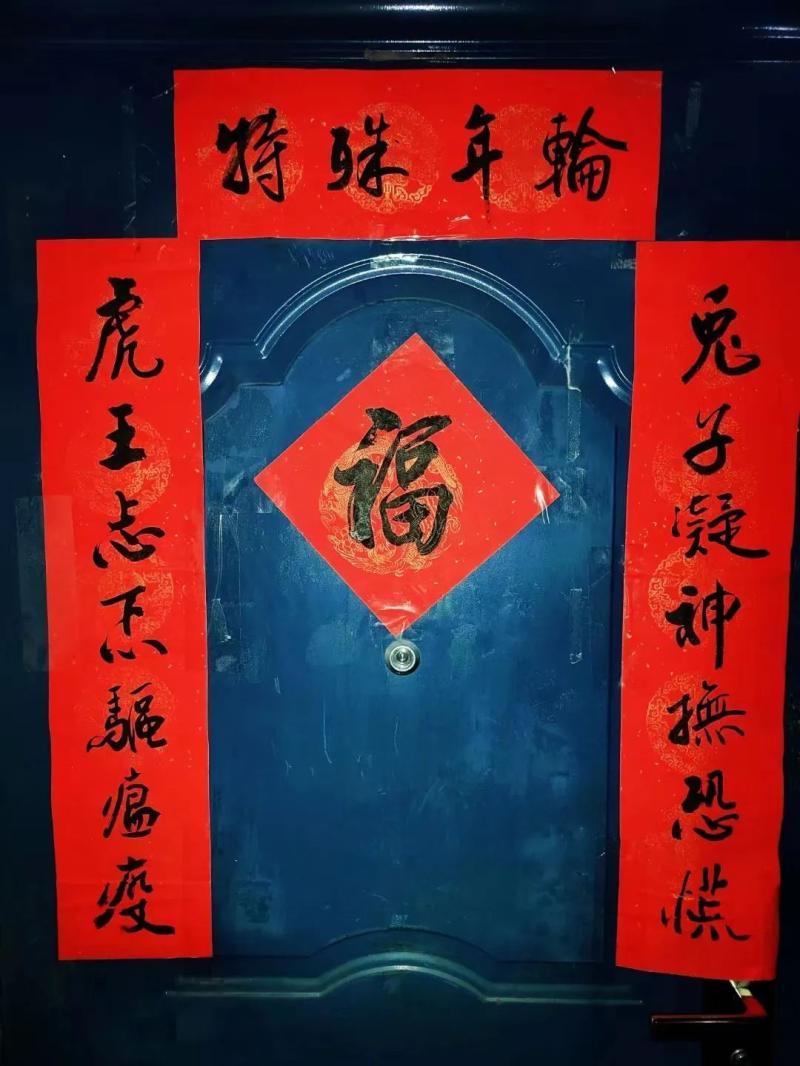 特殊年輪
虎王忐忑驅瘟疫
福
兔子凝神撫恐慌